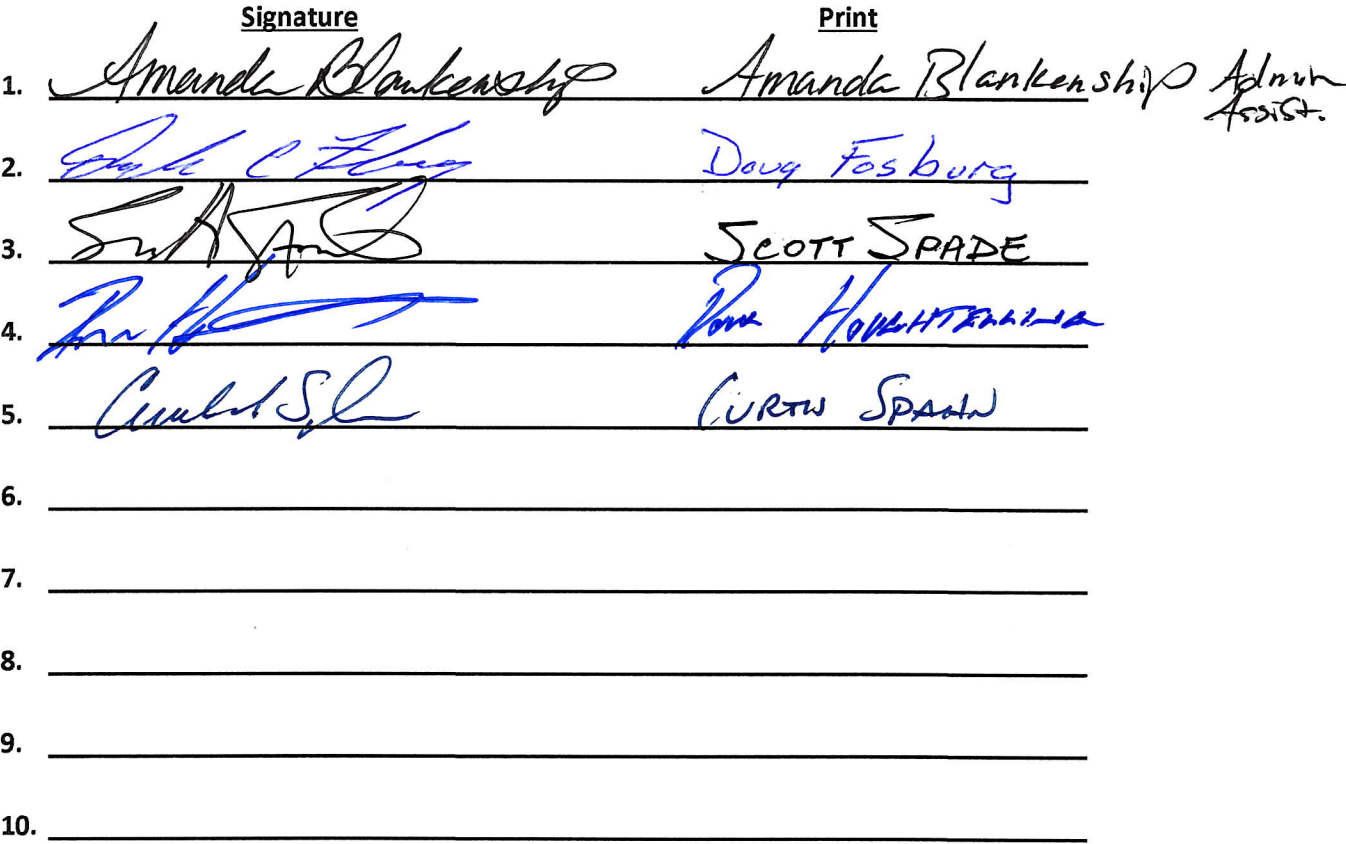 Signature Print
1. Amanda Blankenship Amanda Blankenship Admin
Assist.
2. Doug Fosburg
3. Scott Spade
4. Houghtelling
5. Curtis Spahn
6.
7.
8.
9.
10.